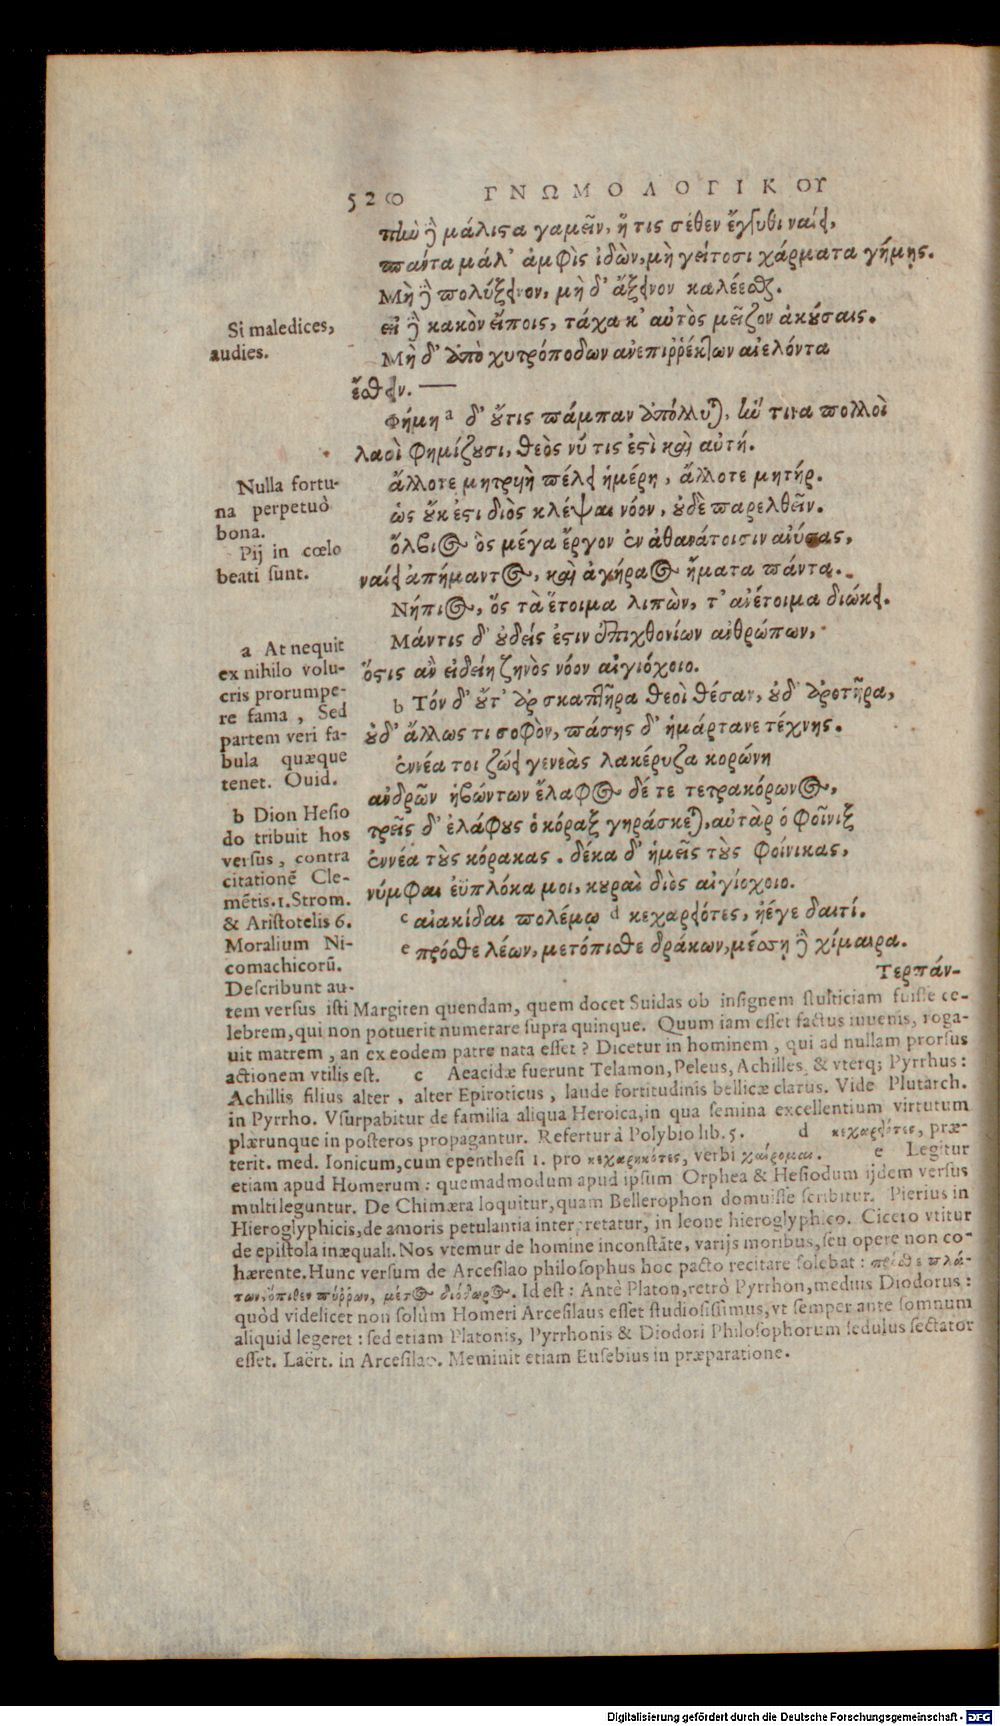 520 ΓΝΩΜΟΛΟΓΙΚΟΥ
τὴν δὲ μάλιστα γαμεῖν, ἥ τις σέθεν ἔγγυθι ναίει,
πάντα μάλ' ἀμφὶς ἰδὼν, μὴ γείτοσι χάρματα γήμῃς.
Μὴ δὲ πολύξεινον, μὴ δ' ἄξεινον καλέεσθαι.
Si maledices,
audies.
εἰ δὲ κακὸν εἴποις, τάχα κ' αὐτὸς μεῖζον ἀκούσαις.
Μὴ δ' ἀπὸ χυτρόποδων ἀνεπιῤῥέκτων αἰελόντα
ἔσθειν. —
Φήμη a δ' οὔτις πάμπαν ἀπόλλυται, ἥν τινα πολλοὶ
λαοὶ φημίζουσι, θεὸς νύ τις ἐστὶ καὶ αὐτή.
Nulla fortu-
na perpetuò
bona.
ἄλλοτε μητρυιὴ πέλει ἡμέρη, ἄλλοτε μητήρ.
ὡς οὔκ ἐστι διὸς κλέψαι νόον, οὐδὲ παρελθεῖν.
Pij in cœlo
beati sunt.
ὄλβιος ὃς μέγα ἔργον ἐν ἀθανάτοισιν ἀνύσας,
ναίει ἀπήμαντος, καὶ ἀγήραος ἤματα πάντα.
Νήπιος, ὅς τὰ ἕτοιμα λιπὼν, τ' ἀνέτοιμα διώκει.
Μάντις δ' οὐδείς ἐστιν ἐπιχθονίων ἀνθρώπων,
ὅστις ἂν εἰδείη ζηνὸς νόον αἰγιόχοιο.
b Τόν δ' οὔτ' ἂρ σκαπτῆρα θεοὶ θέσαν, οὐδ' ἀροτῆρα,
οὐδ' ἄλλως τι σοφὸν, πάσης δ' ἡμάρτανε τέχνης.
ἐννέα τοι ζώει γενεὰς λακέρυζα κορώνη
ἀνδρῶν ἡβώντων ἔλαφος δέ τε τετρακόρωνος,
τρεῖς δ' ἐλάφους ὁ κόραξ γηράσκεται, αὐτὰρ ὁ φοῖνιξ
ἐννέα τοὺς κόρακας. δέκα δ' ἡμεῖς τοὺς φοίνικας,
νύμφαι ἐϋπλόκαμοι, κουραὶ διὸς αἰγίοχοιο.
c αἰακίδαι πολέμῳ d κεχαρειότες, ἠέγε δαιτί.
e πρόσθε λέων, μετόπισθε δράκων, μέσση δὲ χίμαιρα.
Τερπάν-
a At nequit
ex nihilo volu-
cris prorumpe-
re fama, Sed
partem veri fa-
bula quæque
tenet. Ouid.
b Dion Hesio
do tribuit hos
versus, contra
citationē Cle-
mētis. 1. Strom.
& Aristotelis 6.
Moralium Ni-
comachicorū.
Describunt au-
tem versus isti Margiten quendam, quem docet Suidas ob insignem stulticiam fuisse ce-
lebrem, qui non potuerit numerare supra quinque. Quum iam esset factus iuvenis, roga-
uit matrem, an ex eodem patre nata esset? Dicetur in hominem, qui ad nullam prorsus
actionem vtilis est. c Aeacidæ fuerunt Telamon, Peleus, Achilles, & vterq; Pyrrhus:
Achillis filius alter, alter Epiroticus, laude fortitudinis bellicæ clarus. Vide Plutarch.
in Pyrrho. Vsurpabitur de familia aliqua Heroica, in qua semina excellentium virtutum
plærunque in posteros propagantur. Refertur à Polybio lib. 5. d κεχαρειότες, præ-
terit. med. Ionicum, cum epenthesi 1. pro κεχαρηκότες, verbi χαίρομαι. e Legitur
etiam apud Homerum: quemadmodum apud ipsum Orphea & Hesiodum ijdem versus
multi leguntur. De Chimæra loquitur, quam Bellerophon domuisse scribitur. Pierius in
Hieroglyphicis, de amoris petulantia interpretatur, in leone hieroglyphico. Cicero vtitur
de epistola inæquali. Nos vtemur de homine inconstāte, varijs moribus, seu opere non co-
hærente. Hunc versum de Arcesilao philosophus hoc pacto recitare solebat: πρόσθε πλά-
των, ὄπιθεν πύῤῥων, μέσος διόδωρος. Id est: Antè Platon, retrò Pyrrhon, medius Diodorus:
quòd videlicet non solùm Homeri Arcesilaus esset studiosissimus, vt semper ante somnum
aliquid legeret: sed etiam Platonis, Pyrrhonis & Diodori Philosophorum sedulus sectator
esset. Laërt. in Arcesilao. Meminit etiam Eusebius in præparatione.
Digitalisierung gefördert durch die Deutsche Forschungsgemeinschaft - DFG